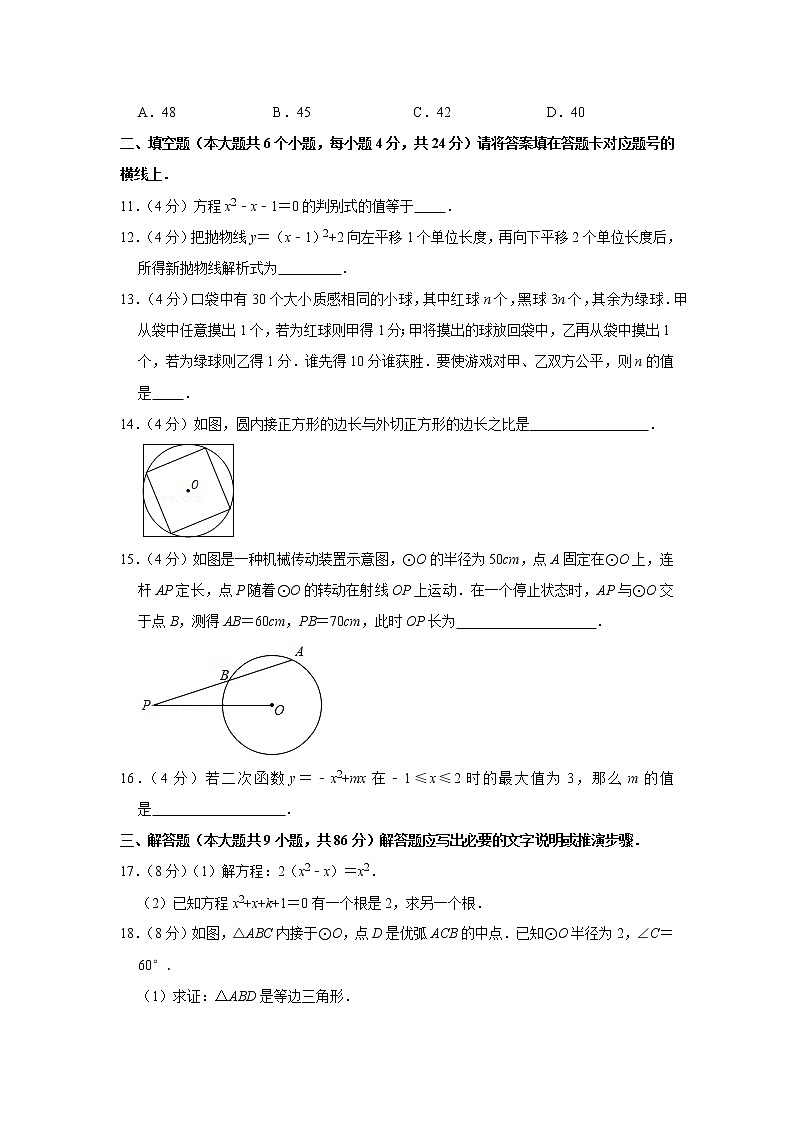 A．48 B．45 C．42 D．40
二、填空题（本大题共6个小题，每小题4分，共24分）请将答案填在答题卡对应题号的
横线上．
11.（4分）方程x²﹣x﹣1＝0的判别式的值等于____．
12.（4分）把抛物线y＝（x﹣1）²+2向左平移1个单位长度，再向下平移2个单位长度后，
所得新抛物线解析式为________．
13.（4分）口袋中有30个大小质感相同的小球，其中红球n个，黑球3n个，其余为绿球．甲
从袋中任意摸出1个，若为红球则甲得1分；甲将摸出的球放回袋中，乙再从袋中摸出1
个，若为绿球则乙得1分．谁先得10分谁获胜．要使游戏对甲、乙双方公平，则n的值
是____．
14.（4分）如图，圆内接正方形的边长与外切正方形的边长之比是________________．
O
15.（4分）如图是一种机械传动装置示意图，⊙O的半径为50cm，点A固定在⊙O上，连
杆AP定长，点P随着⊙O的转动在射线OP上运动．在一个停止状态时，AP与⊙O交
于点B，测得AB＝60cm，PB＝70cm，此时OP长为__________________．
A
B
P
O
16.（4分）若二次函数y＝﹣x²+mx在﹣1≤x≤2时的最大值为3，那么m的值
是_________________．
三、解答题（本大题共9小题，共86分）解答题应写出必要的文字说明或推演步骤．
17.（8分）（1）解方程：2（x²﹣x）＝x²．
（2）已知方程x²+x+k+1＝0有一个根是2，求另一个根．
18.（8分）如图，△ABC内接于⊙O，点D是优弧ACB的中点．已知⊙O半径为2，∠C＝
60°．
（1）求证：△ABD是等边三角形．